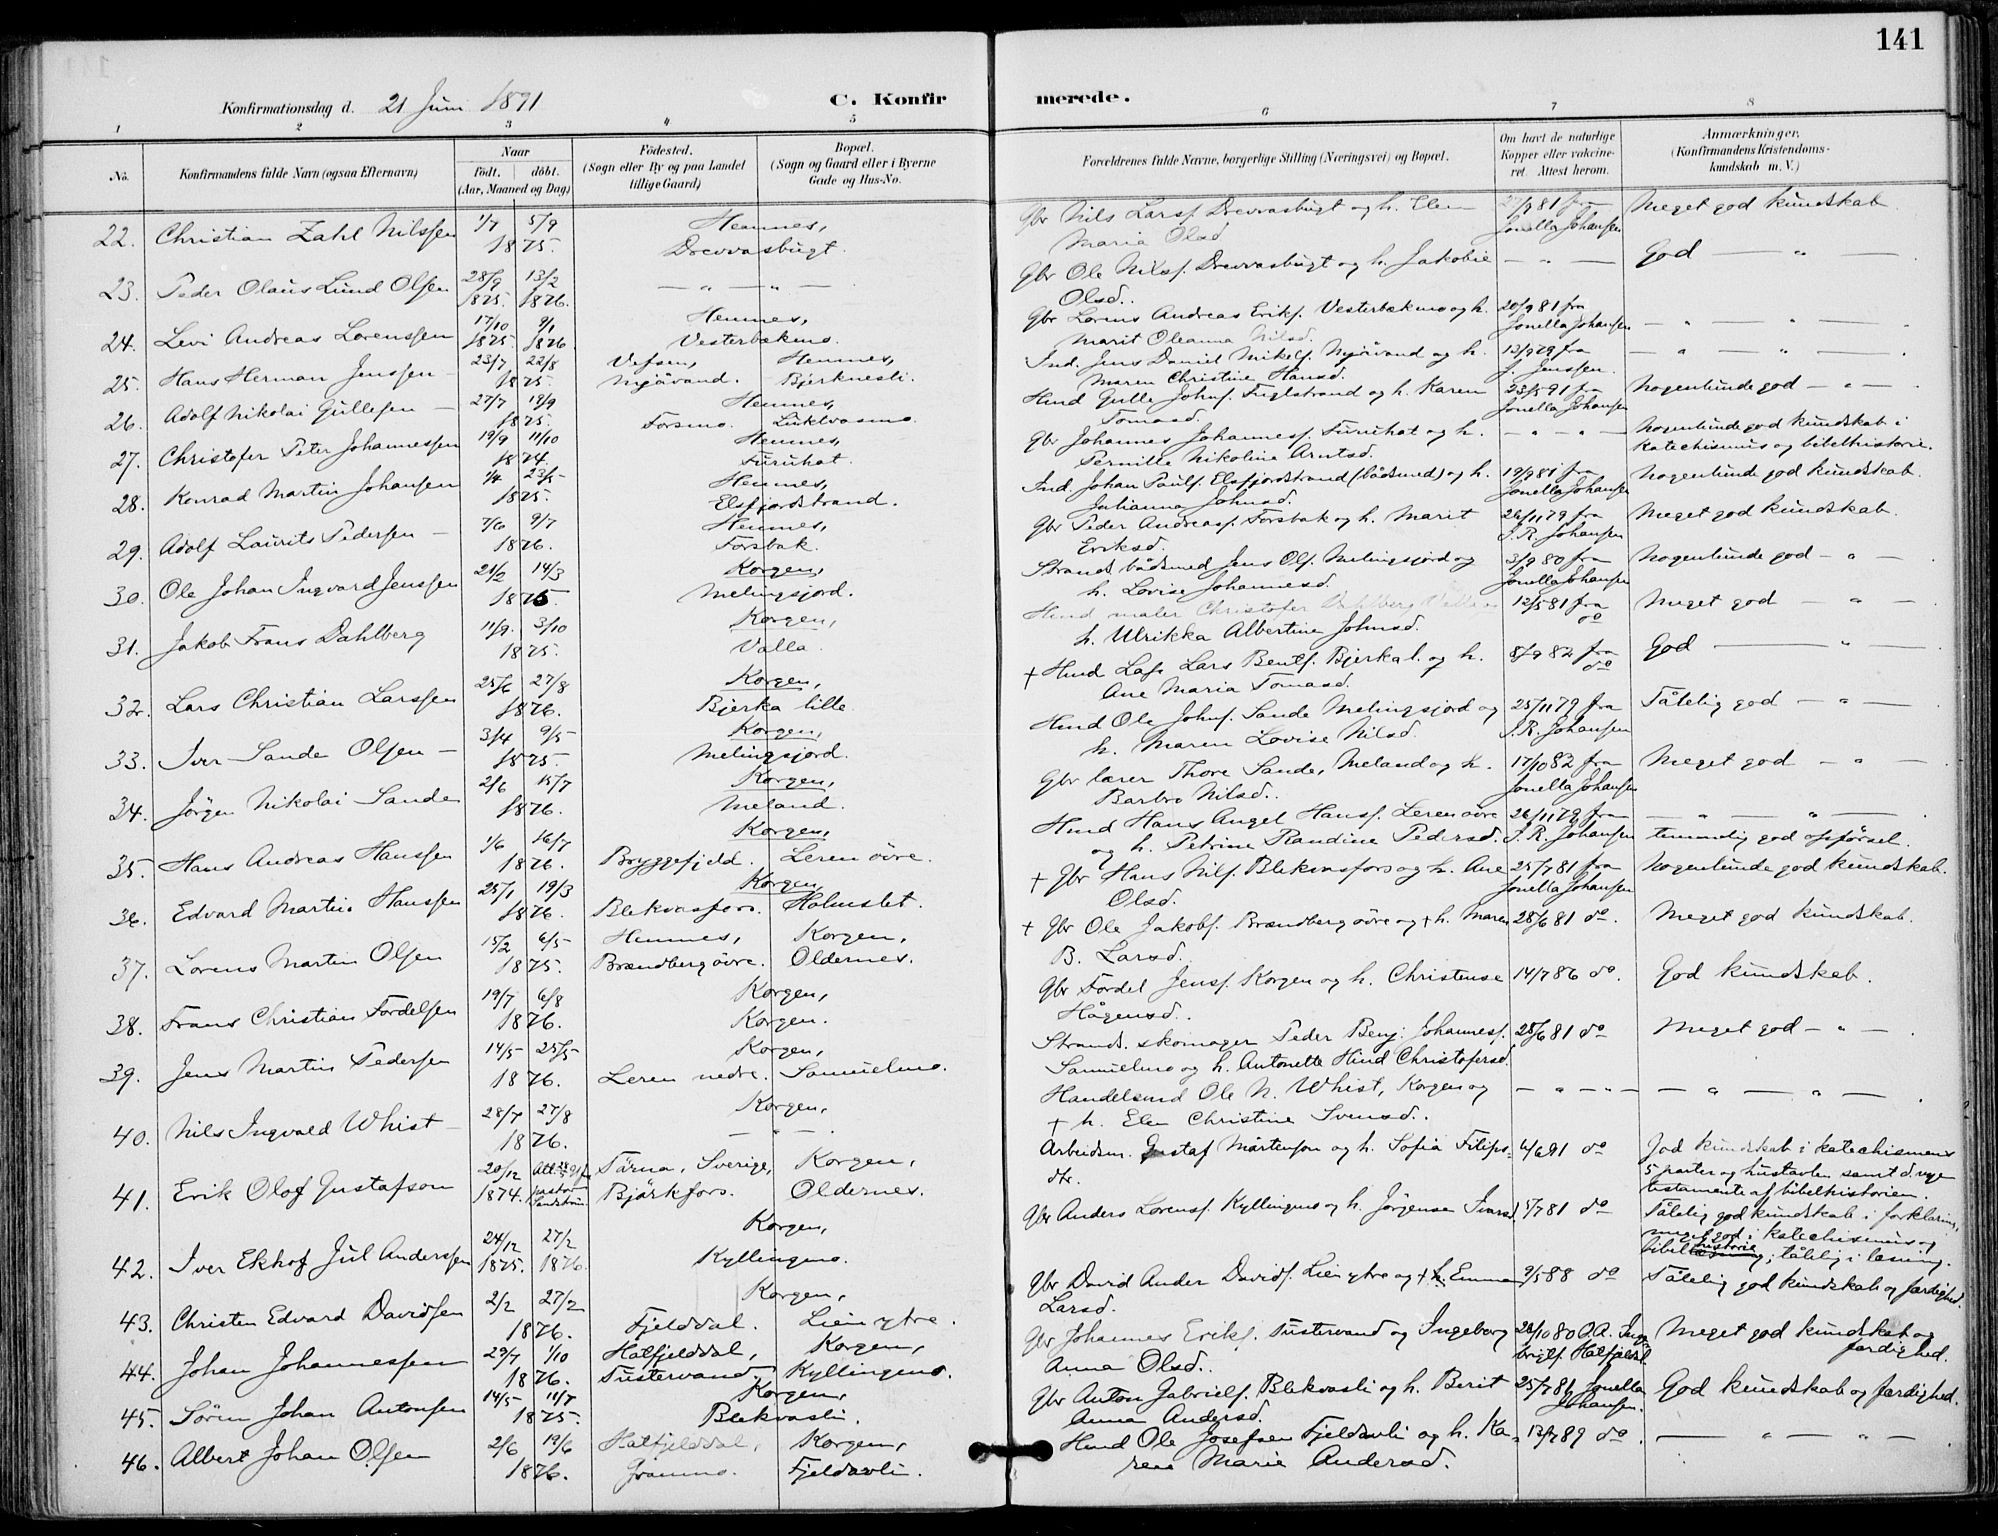 141
Konfirmationsdag d. 21 Juni 1891
C. Konfirmerede.
1 2 3 4 5 6 7 8
No.
Konfirmandens fulde Navn (ogsaa Efternavn)
Naar
født. døbt.
(Aar, Maaned og Dag)
Födested.
(Sogn eller By og paa Landet
tillige Gaard)
Bopæl.
(Sogn og Gaard eller i Byerne
Gade og Hus-No.
Forældrenes fulde Navne, borgerlige Stilling (Næringsvei) og Bopæl.
Om havt de naturlige
Kopper eller vakcine-
ret. Attest herom.
Anmærkninger.
(Konfirmandens Kristendoms-
kundskab m. V.)
22. Christian Zahl Nilssen 1/7 5/9 1875. Hemnes, Drevvasbugt. Gbr Nils Larsf. Drevvasbugt og h. Elen Maria Olsd. 27/9 81 fra Jonella Johansen Meget god kundskab
23. Peder Olaus Lund Olsen 28/9 1875. 13/2 1876. — " — " — Gbr Ole Nilsf. Drevvasbugt og h. Jakobie Olsd. — " — God — " —
24. Levi Andreas Lorenssen 17/10 1875 9/1 1876 Hemnes, Vesterbækmo. Gbr Lorens Andreas Eriks. Vesterbækmo og h. Marit Oleanna Nilsd. 20/9 81 fra Jonella Johansen — " — " —
25. Hans Herman Jenssen 23/7 22/8 1875. Vefsen, Mjåvand. Hemnes, Bjerknesli. Ind. Jens Daniel Mikelf. Mjåvand og h. Maren Christine Hansd. 13/9 79 fra J. Jenssen. — " — " —
26. Adolf Nikolai Gullesen 27/7 19/9 1875. Hemnes, Forsmo. Luktvasmo. Hmd Gulle Johnf. Fuglstrand og h. Karen Tomasd. 23/5 91 fra Jonella Johansen Nogenlunde god — " —
27. Christofer Peter Johannessen 19/9 11/10 1874. Hemnes, Furuhat. Gbr Johannes Johannesf. Furuhat og h. Pernille Nikoline Arntsd. — " — " — Nogenlunde god kundskab i katechismus og bibelhistorie.
28. Konrad Martin Johansen 1/4 23/5 1875. Hemnes, Elsfjordstrand. Ind. Johan Paulf. Elsfjordstrand (bådsmd) og h. Julianna Johnsd. 19/9 81 fra Jonella Johansen Nogenlunde god kundskab.
29. Adolf Laurits Pedersen 7/6 9/7 1876. Hemnes, Forsbak. Gbr Peder Andreasf. Forsbak og h. Marit Eriksd. 26/11 79 fra J. R. Johansen Meget god kundskab.
30. Ole Johan Ingvard Jenssen 21/2 14/3 1875. Korgen, Melingsjord. Strands. bådsmed Jens Olf. Melingsjord og h. Lovise Johannesd. 3/9 80 fra Jonella Johansen Nogenlunde god — " —
31. Jakob Frans Dahlberg 11/9. 3/10 1875. Korgen, Valla. Hmd maler Christofer Dahlberg Valla og h. Ulrikka Albertine Johnsd. 12/5 81 fra do Meget god — " —
32. Lars Christian Larssen 25/6 27/8 1876. Korgen, Bjerka lille † Hmd Lars Bentf. Bjerka l. og h. Ane Maria Tomasd. 8/9 82 fra do God — " —
33. Iver Sande Olsen 3/4 9/5 1875. Korgen, Melingsjord. Hmd Ole Johnf. Sande Melingsjord og h. Maren Lovise Nilsd. 25/11 79 fra J. R. Johansen Tålelig god — " —
34. Jörgen Nikolai Sande 2/6 15/7 1876. Korgen, Meland. Gbr lærer Thore Sande, Meland og h. Barbro Nilsd. 17/10 82 fra Jonella Johansen Meget god — " —
35. Hans Andreas Hanssen 1/6 16/7 1876. Korgen, Bryggefjeld. Leren övre. Hmd Hans Angel Hansf. Leren övre og h. Petrine Randine Pedersd. 26/11 79 fra J. R. Johansen — " — " — temmelig god opførsel.
36. Edvard Martin Hanssen 25/1 19/3 1876. Korgen Blekvasfors. Holmslet. † Gbr Hans Nilf. Blekvasfors og h. Ane Olsd. 25/7 81 fra Jonella Johansen Nogenlunde god kundskab.
37. Lorens Martin Olsen 15/2 6/5 1875. Hemnes, Brændberg övre. Korgen, Oldernes. † Gbr Ole Jakobf. Brændberg övre og † h. Maren B. Larsd. 28/6 81 do. Meget god kundskab.
38. Frans Christian Fordelsen 19/7 6/8 1876. Korgen, Korgen. Gbr Fordel Jensf. Korgen og h. Christense Hågensd. 14/7 86 do. God kundskab.
39. Jens Martin Pedersen 14/5 25/5 1876. Korgen, Leren nedre. Samuelmo. Strands. skomager Peder Benj. Johannesf. Samuelmo og h. Antonette Hind Christofersd. 28/6 81 do Meget god — " —
40. Nils Ingvald Whist 28/7 27/8 1876. Korgen, — " — Handelsmd Ole N. Whist, Korgen og † h. Elen Christine Svensd. — " — " — — " — " —
41. Erik Olof Gustafson 20/12 1874. Tärna, Sverige, Björkfors. Korgen, Oldernes. Arbeidsm. Gustaf Mårtenson og h. Sofia Filipsdtr. 4/6 91 do God kundskab i katechismens 5 parter og hustavlen samt d. nye testamente af bibelhistorien.
42. Iver Ekhof Jul Anderssen 24/12 1875. 27/2 1876. Korgen, Kyllingmo. Gbr Anders Lorensf. Kyllingmo og h. Jörgense Ivarsd. 5/7 81 do Tålelig god kundskab i forklaring, meget god i katechismus og bibelhistorie; tålelig i læsning.
43. Christen Edvard Davidsen 2/2 27/2 1876. Korgen, Fjelddal. Lien ytre. Gbr David Ander Davidf. Lien ytre og † h. Emma Larsd. 9/5 88 do Tålelig god kundskab og færdighed.
44. Johan Johannessen 29/7 1/10 1876. Hatfjelddal, Tustervand. Korgen, Kyllingmo. Gbr Johannes Erikf. Tustervand og Ingeborg Anna Olsd. 28/10 80 O. A. Ingebrigtf. Hatfjeldd. Meget god kundskab og færdighed.
45. Sören Johan Antonsen 14/5 11/7 1875. Korgen, Blekvasli. Gbr Anton Gabrielf. Blekvasli og h. Berit Anna Andersd. 25/7 81 Jonella Johansen. God kundskab og færdighed.
46. Albert Johan Olsen 2/6 19/6 1876. Hatfjelddal, Granmo. Korgen, Fjeldavli. Hmd Ole Josefsen Fjeldavli og h. Karene Marie Andersd. 12/7 89 do. — " — " —